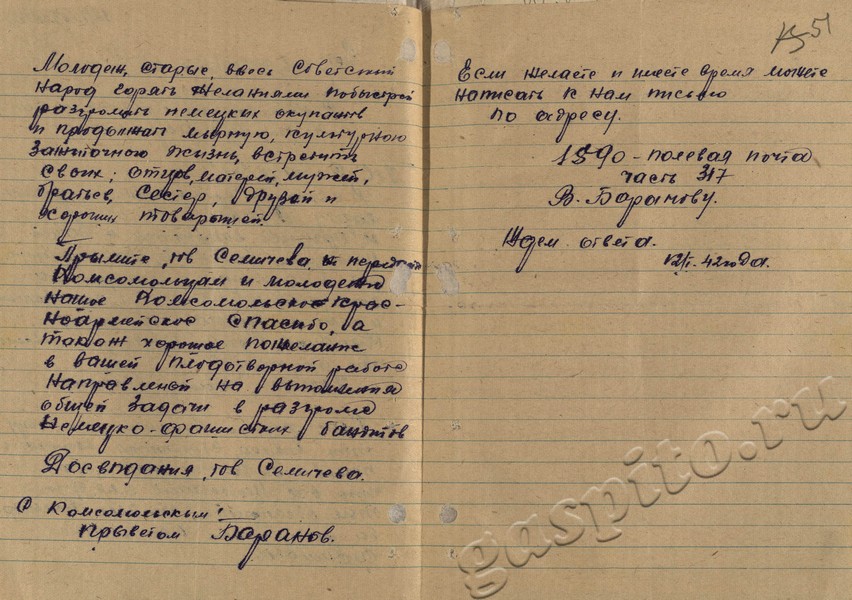 Молодеж, старые, ввесь Советский
Народ горять желаниями побыстрей
разгромить немецких окупантов
и продолжать мырную, культурною
Зажиточною жизнь, встретить
своих: отцов, матерей, мужей,
братьев, Сестер, друзей и
хороших товарыщей.
Прымите, тов Семичева, и передайте
Комсомольцам и молодежю
нашое Комсомольское крас-
ноармейское спасибо, а
также хорошое пожелание
в вашей плодотворной работе
направленой на выполнения
обшей задачи в разгроме
Немецко-фашистких бандитов
Досвидания, тов Семичева.
С Комсомольским
прывєтом Баранов.
51
Если желаете и имеете время можете
написать к нам письмо
по адресу.
1590 - полевая почта
часть 317
В. Баранову.
Ждем ответа.
12/I. 42 года.
gaspito.ru